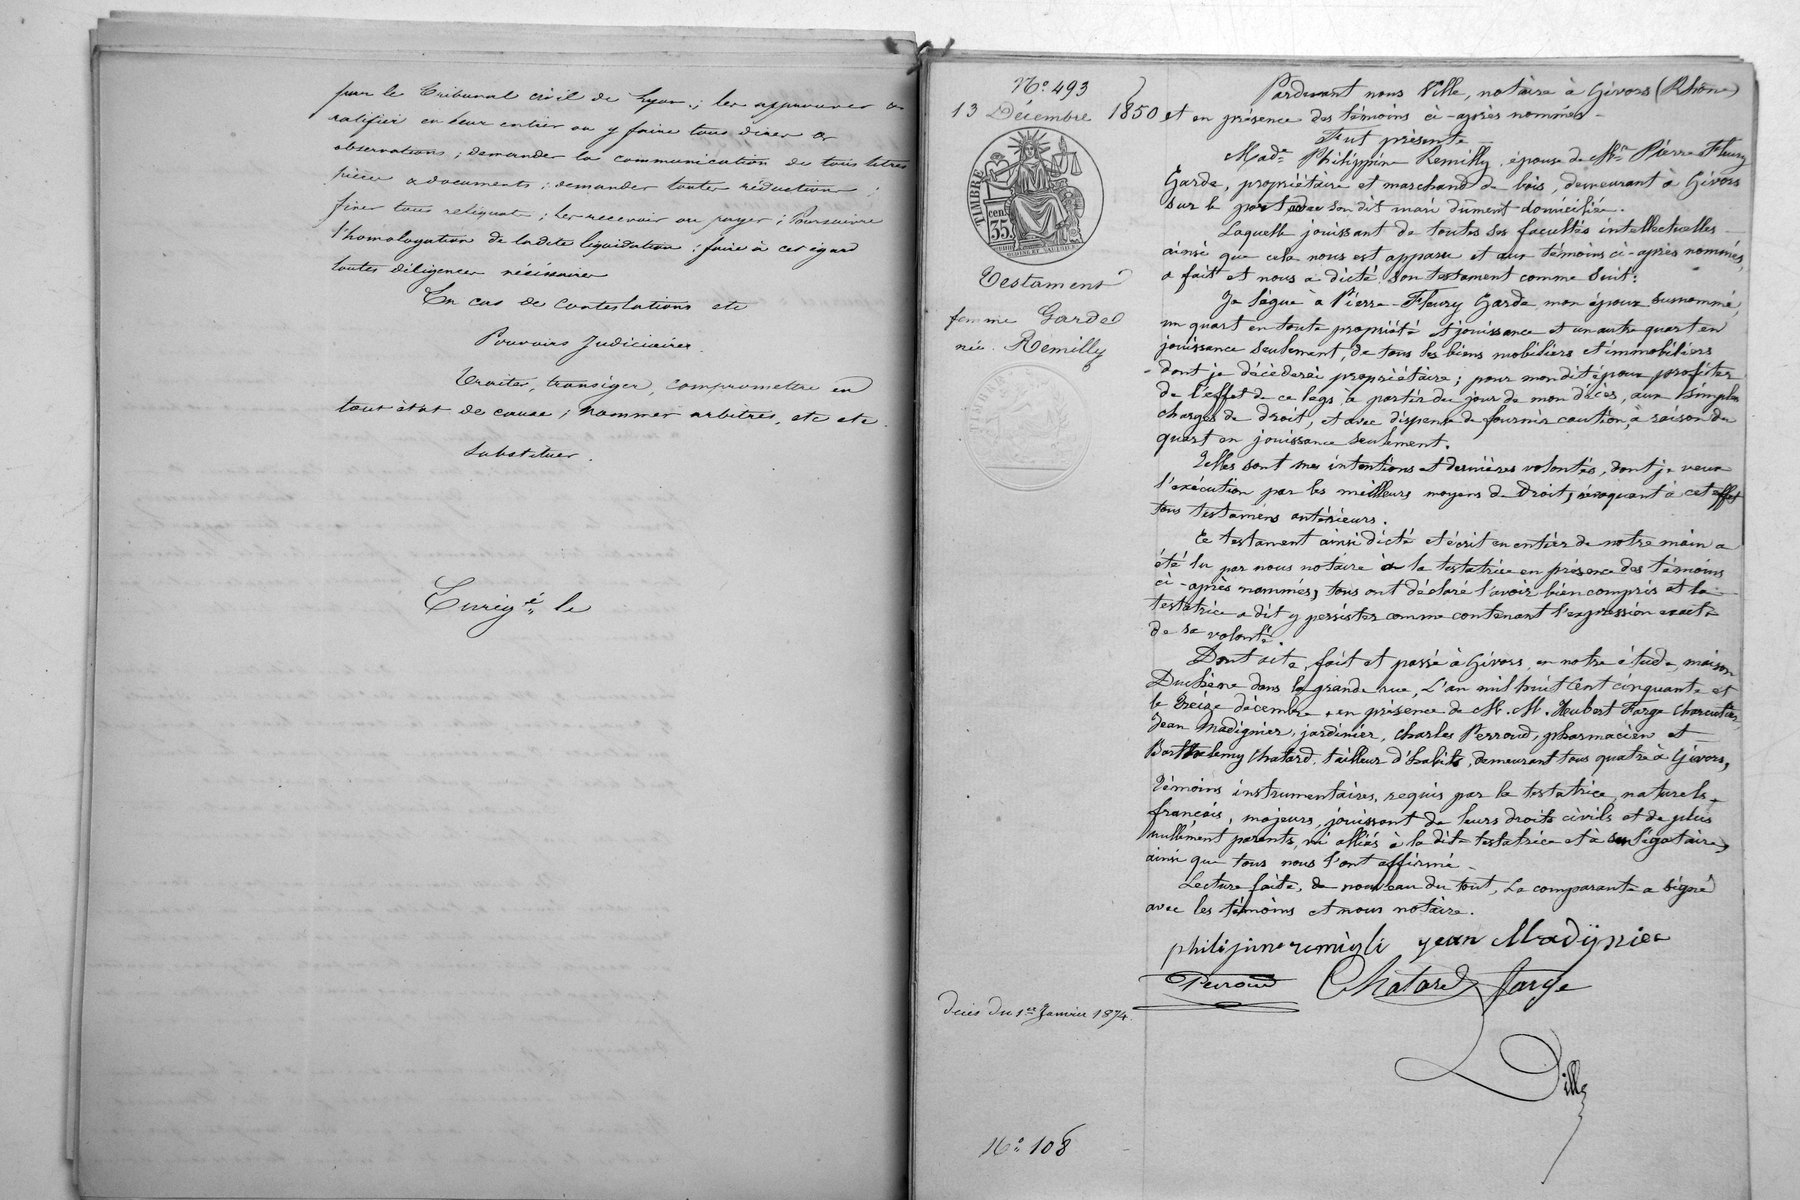 par le Tribunal civil de Lyon ; les approuver et
ratifier en leur entier ou y faire tous dires et
observations ; demander la communication de tous titres
pièces et documents ; demander toutes réductions ;
fixer tous reliquats ; les recevoir ou payer ; Poursuivre
l'homologation de ladite liquidation ; faire à cet égard
toutes diligences nécessaires
En cas de contestations etc
Pouvoirs Judiciaires.
Traiter, transiger, compromettre en
tout état de cause ; nommer arbitres, etc etc.
Substituer.
Enregé le
No 493
13 Décembre 1850
TIMBRE
cens
35
Testament
femme Garde
née Remilly
décès du 1er Janvier 1874.
No 108
Pardevant nous Dille, notaire à Givors (Rhône)
et en présence des témoins ci-après nommés -
Fut présente
Made Philippine Remilly, épouse de Mr Pierre Fleury
Garde, propriétaire et marchand de bois, demeurant à Givors
sur le port, avec son dit mari dûment domiciliée.
Laquelle jouissant de toutes ses facultés intellectuelles -
ainsi que cela nous est apparu et aux témoins ci-après nommés,
a fait et nous a dicté son testament comme suit :
Je lègue à Pierre-Fleury Garde mon époux susnommé,
un quart en toute propriété et jouissance et un autre quart en
jouissance seulement, de tous les biens mobiliers et immobiliers
dont je décèderai propriétaire ; pour mon dit époux profiter
de l'effet de ce legs, à partir du jour de mon décès, aux simples
charges de droit, et avec dispense de fournir caution, à raison du
quart en jouissance seulement.
Telles sont mes intentions et dernières volontés, dont je veux
l'exécution par les meilleurs moyens de Droit, révoquant à cet effet
tous testamens antérieurs.
Ce testament ainsi dicté et écrit en entier de notre main a
été lu par nous notaire à la testatrice en présence des témoins
ci-après nommés, tous ont déclaré l'avoir bien compris et la -
testatrice a dit y persister comme contenant l'expression exacte
de sa volonté.
Dont acte, fait et passé à Givors, en notre étude, maison
Duchène dans la grande rue, L'an mil huit Cent cinquante et
le Treize décembre, en présence de M. M. Hubert Farge Charcutier,
Jean Madignier, jardinier, Charles Perroud, pharmacien et -
Barthélemy Chatard, tailleur d'habits, demeurant tous quatre à Givors,
Témoins instrumentaires, requis par la testatrice, naturels
français, majeurs, jouissant de leurs droits civils et de plus
nullement parents, ni alliés à la dite testatrice et à son légataire,
ainsi que tous nous l'ont affirmé -
Lecture faite, de nouveau du tout, La comparante a signé
avec les témoins et nous notaire.
philipine remigli jean Madÿnier
Perroud Chatard Farge
Dille